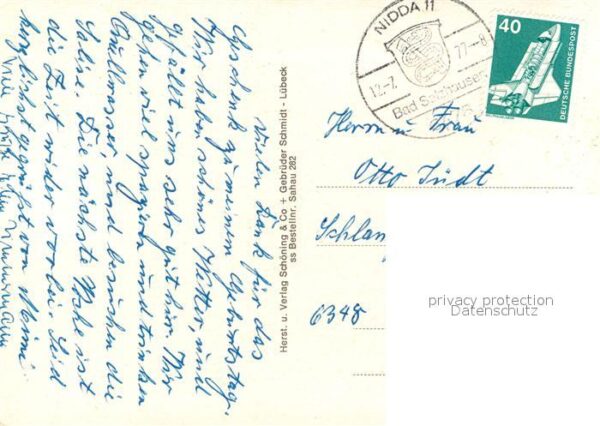 Vielen Dank für das
Geschenk zu meinem Geburtstag.
Wir haben schönes Wetter, und
gefällt uns sehr gut hier. Wir
gehen viel spazieren und trinken
und besuchen die
Saline. Die nächste Woche ist
die Zeit wieder vorbei. Seid
herzlichst gegrüßt von
Herst. u. Verlag Schöning & Co + Gebrüder Schmidt - Lübeck
ss Bestellnr. Sahau 282
NIDDA 11
12.-7. 77-8
Bad Salzhausen
40
DEUTSCHE BUNDESPOST
Herrn u. Frau
Otto Jüdt
Schlan
6348
privacy protection
Datenschutz